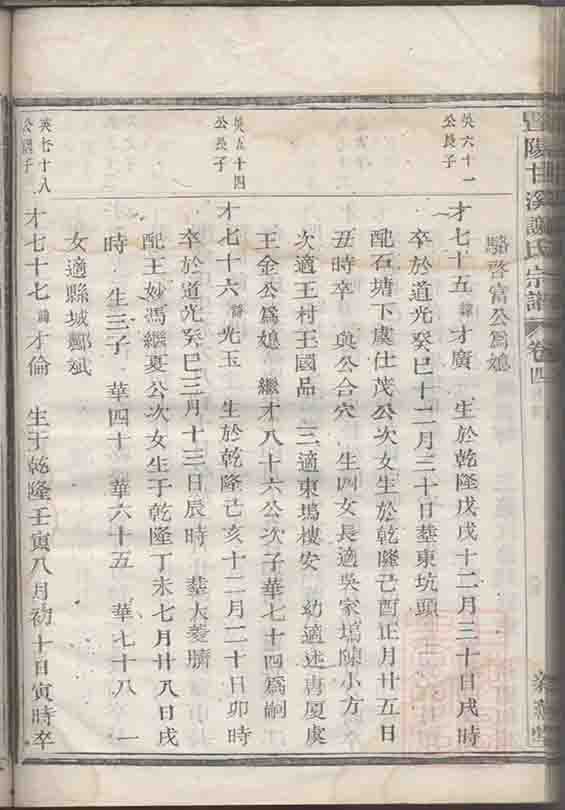 暨陽甘溪謝氏宗譜 卷四
駱啓富公爲媳
英六十一
公長子
才七十五 諱才廣 生於乾隆戊戌十二月三十日戌時
卒於道光癸巳十二月三十日塟東坑頭
配石塘下虞仕茂公次女生於乾隆己酉正月廿五日
丑時卒 與公合穴 生四女長適吳家塢陳小方
次適王村王國品 三適東塢樓安 幼適述唐厦虞
王金公爲媳 繼才八十六公次子華七十四爲嗣
英五十四
公長子
才七十六 諱光玉 生於乾隆己亥十二月二十日卯時
卒於道光癸巳三月十三日辰時 塟大菱臍
配王妙馮繼夏公次女生于乾隆丁未七月廿八日戌
時 生三子 華四十 華六十五 華七十八 一
女適縣城酈斌
英七十八
公 子
才七十七 諱才倫 生于乾隆壬寅八月初十日寅時卒